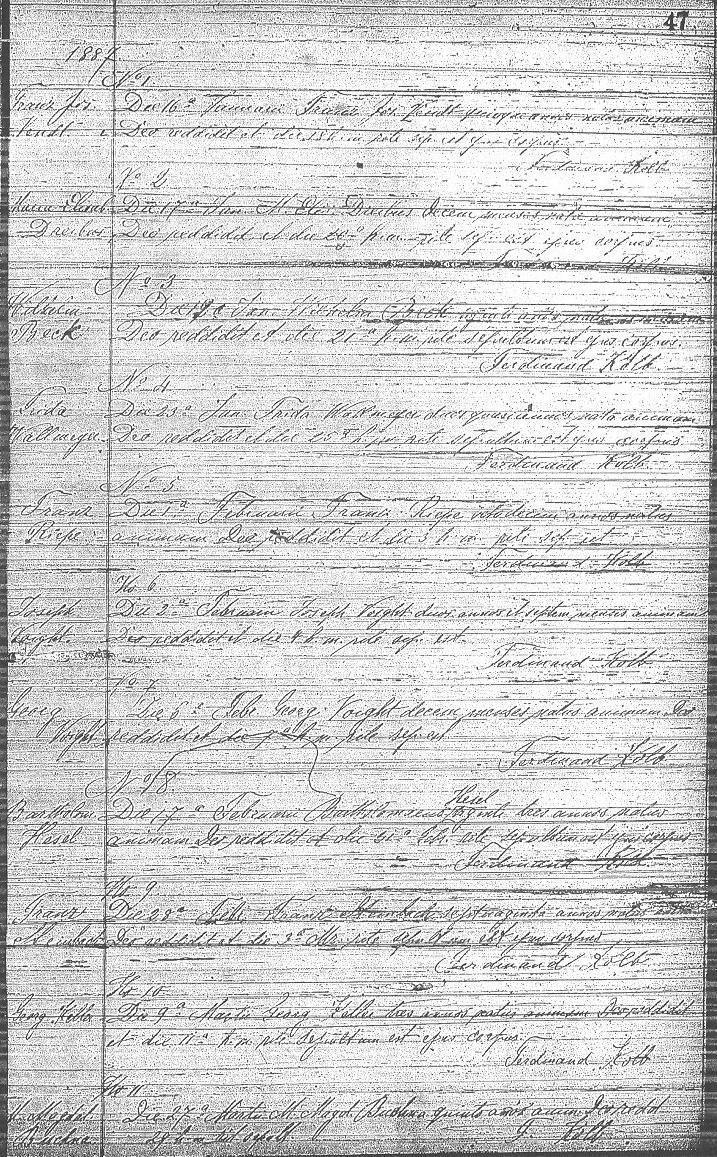 47
1887
No 1.
Franz Jos. Die 16ª Januarii Franz Jos Vendt annos natus animam
Vendt Deo reddidit et die h. m. rite sep. est ejus corpus
Ferdinand Kolb
No 2
Maria Elisab. Die 17ª Jan. M. Elis. Dreibus decem menses nata animam
Dreibus Deo reddidit et die h. m. rite sep. est ejus corpus
Kolb
No 3
Wilhelm Die Jan. Wilhelm Beck annos natus animam
Beck Deo reddidit et die 21ª h. m. rite sepultum est ejus corpus.
Ferdinand Kolb.
No 4.
Frida Die 23ª Jan. Frida Wallmeyer nata animam
Wallmeyer Deo reddidit et die h. m. rite sepultum est ejus corpus
Ferdinand Kolb.
No 5
Franz Die 1ª Februarii Franz Riepe annos natus
Riepe animam Deo reddidit et die 3 h. m. rite sep. est
Ferdinand Kolb
No 6.
Joseph Die 2ª Februarii Joseph Voight duos annos et septem menses animam
Voight Deo reddidit et die 4 h. m. rite sep. est.
Ferdinand Kolb
No 7
Georg Die 6ª Febr. Georg Voight decem menses natus animam Deo
Voight reddidit et die 7ª h. m. rite sep. est
Ferdinand Kolb
No 8
Hesel
Bartholom. Die 17ª Februarii Bartholomaeus tres annos natus
Hesel animam Deo reddidit et die Febr. rite sepultum est ejus corpus
Ferdinand Kolb.
No 9
Franz Die 28ª Febr. Franz Steinbach septuaginta annos natus
Steinbach Deo reddidit et die 3ª Mr. rite sepultum est ejus corpus
Ferdinand Kolb
No 10
Georg Die 9ª Martii Georg tres annos natus animam Deo reddidit
et die 11ª h. m. rite sepultum est ejus corpus.
Ferdinand Kolb
No 11
M. Magdal. Die 27ª Martii M. Magd. annos anim. Deo reddid.
28 h. m. rit. sepult. F. Kolb